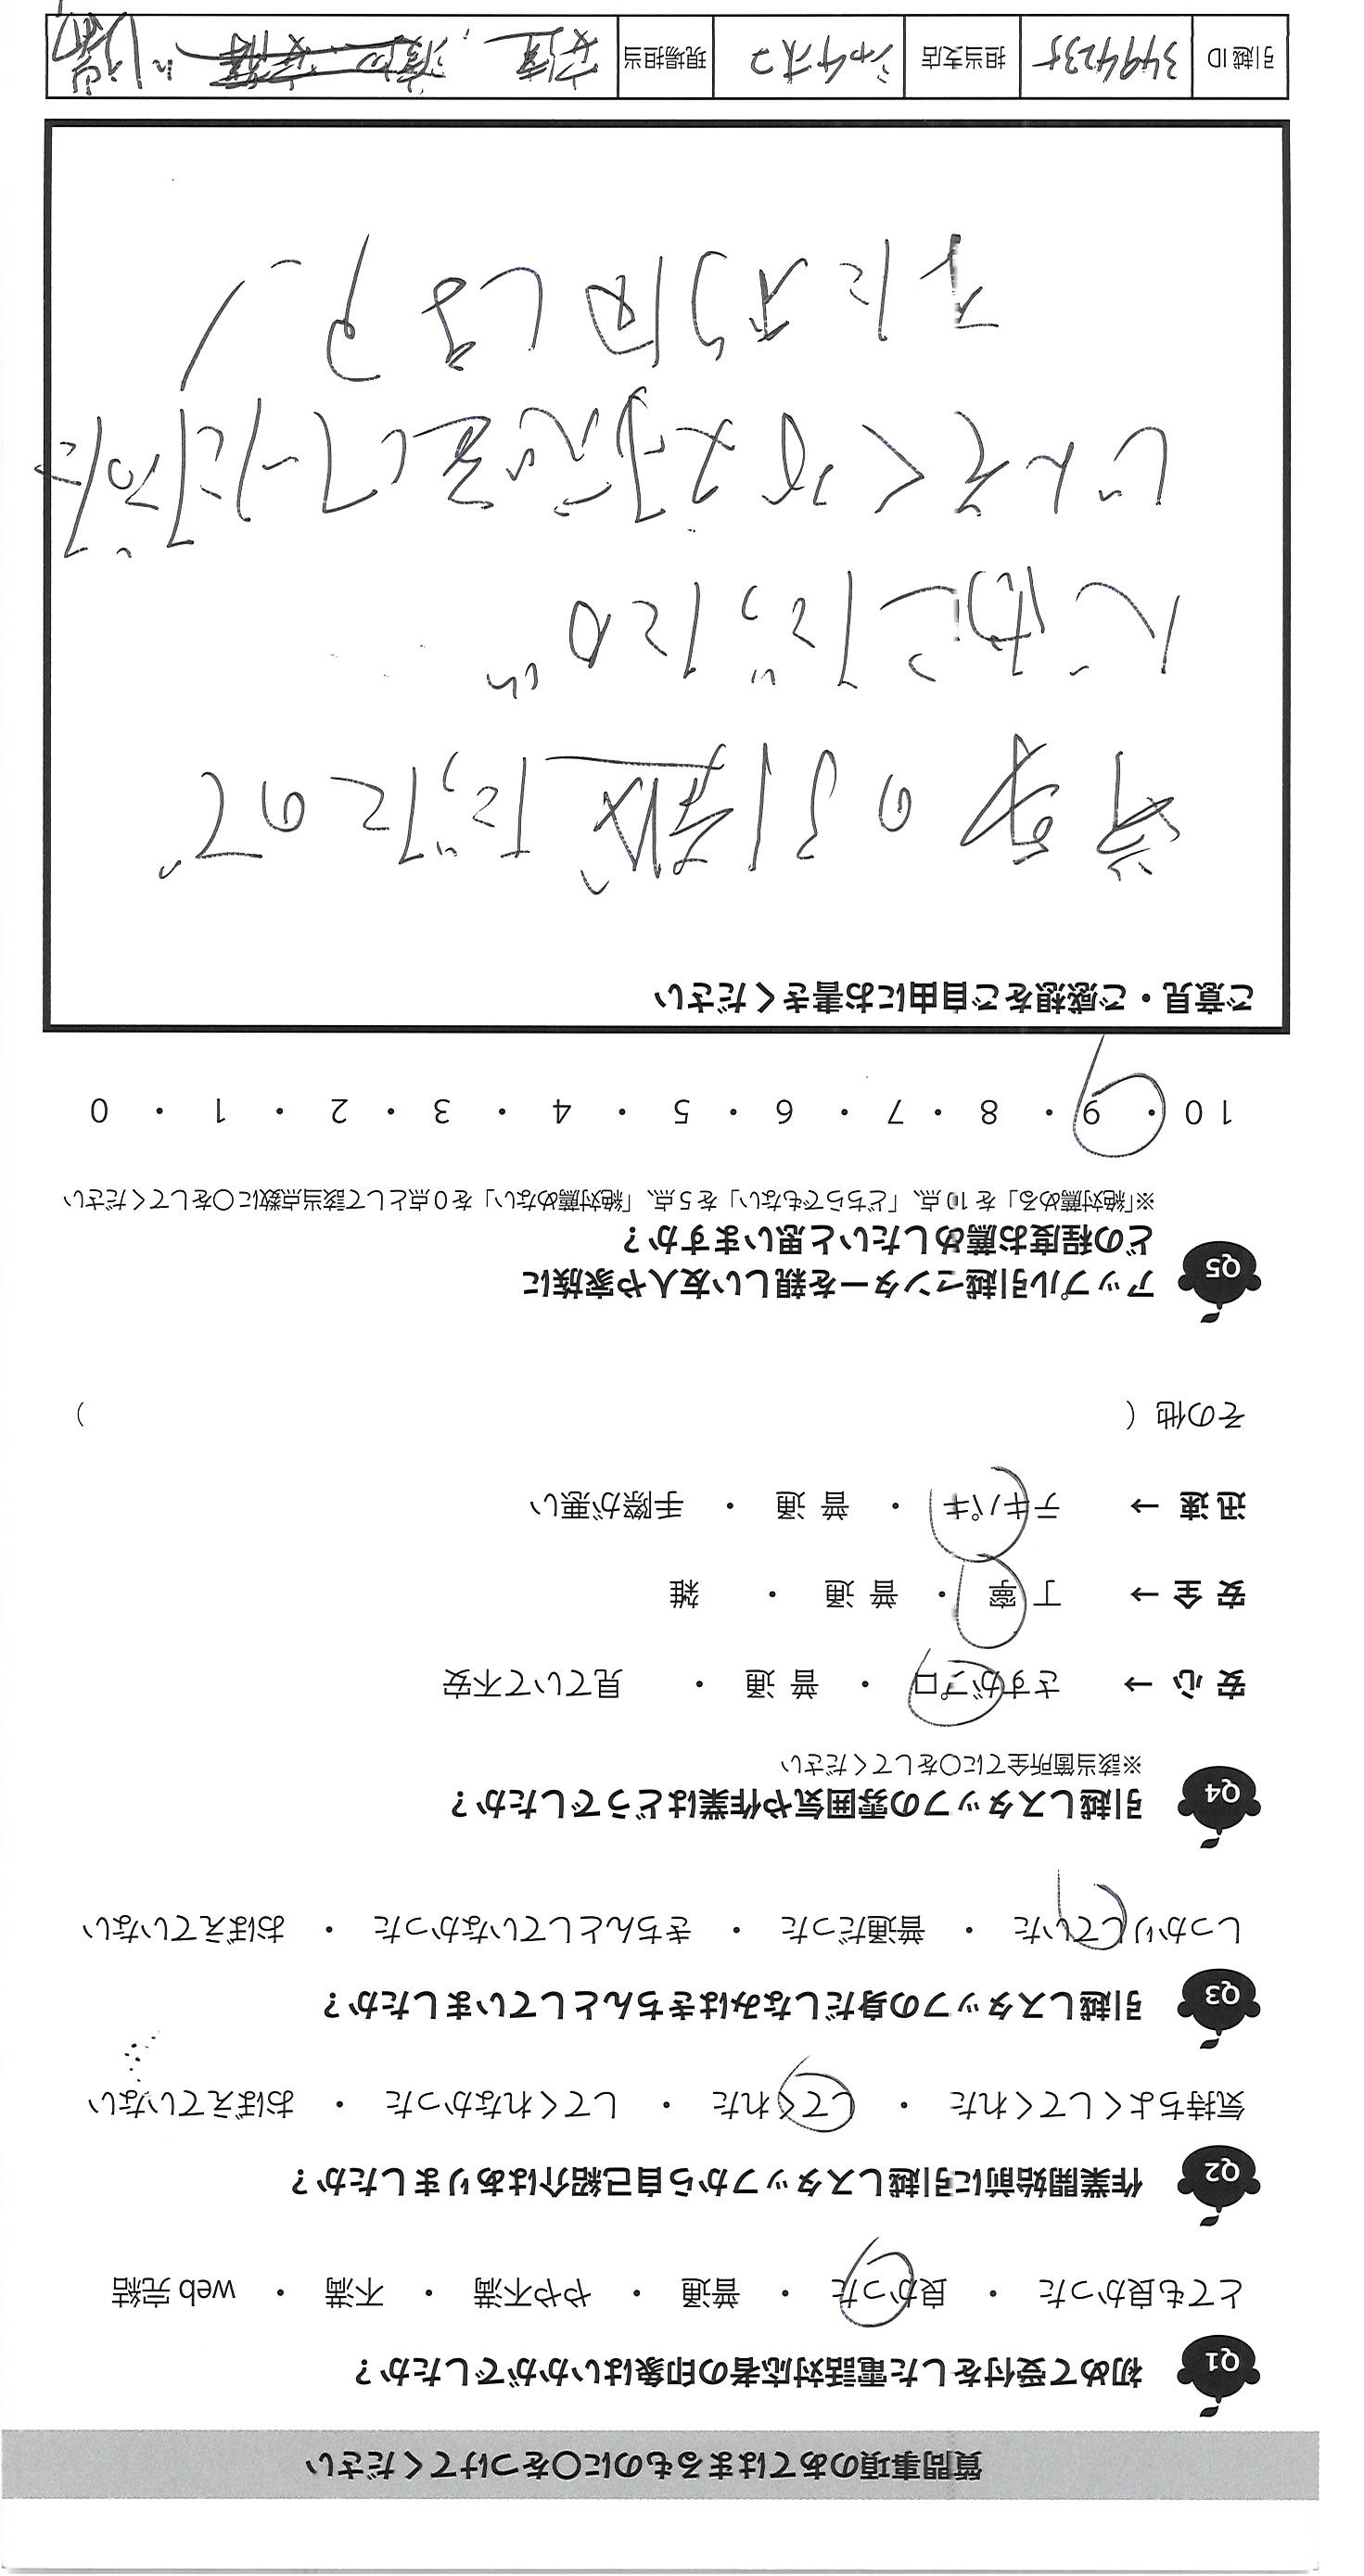 質問事項のあてはまるものに○をつけてください
Q1 初めて受付をした電話対応者の印象はいかがでしたか？
とても良かった ・ 良かった ・ 普通 ・ やや不満 ・ 不満 ・ web 完結
Q2 作業開始前に引越しスタッフから自己紹介はありましたか？
気持ちよくしてくれた ・ してくれた ・ してくれなかった ・ おぼえていない
Q3 引越しスタッフの身だしなみはきちんとしていましたか？
しっかりしていた ・ 普通だった ・ きちんとしていなかった ・ おぼえていない
Q4 引越しスタッフの雰囲気や作業はどうでしたか？
※該当箇所全てに○をしてください
安 心 → さすがプロ ・ 普 通 ・ 見ていて不安
安 全 → 丁 寧 ・ 普 通 ・ 雑
迅 速 → テキパキ ・ 普 通 ・ 手際が悪い
その他（ ）
Q5 アップル引越センターを親しい友人や家族に
どの程度お薦めしたいと思いますか？
※「絶対薦める」を 10 点、「どちらでもない」を 5 点、「絶対薦めない」を 0 点として該当点数に○をしてください
10 ・ 9 ・ 8 ・ 7 ・ 6 ・ 5 ・ 4 ・ 3 ・ 2 ・ 1 ・ 0
ご意見・ご感想をご自由にお書きください
の引越だったので、
心配だったが
じんそくかつ丁
またお願いします。
引越 ID 3494235 担当支店 現場担当